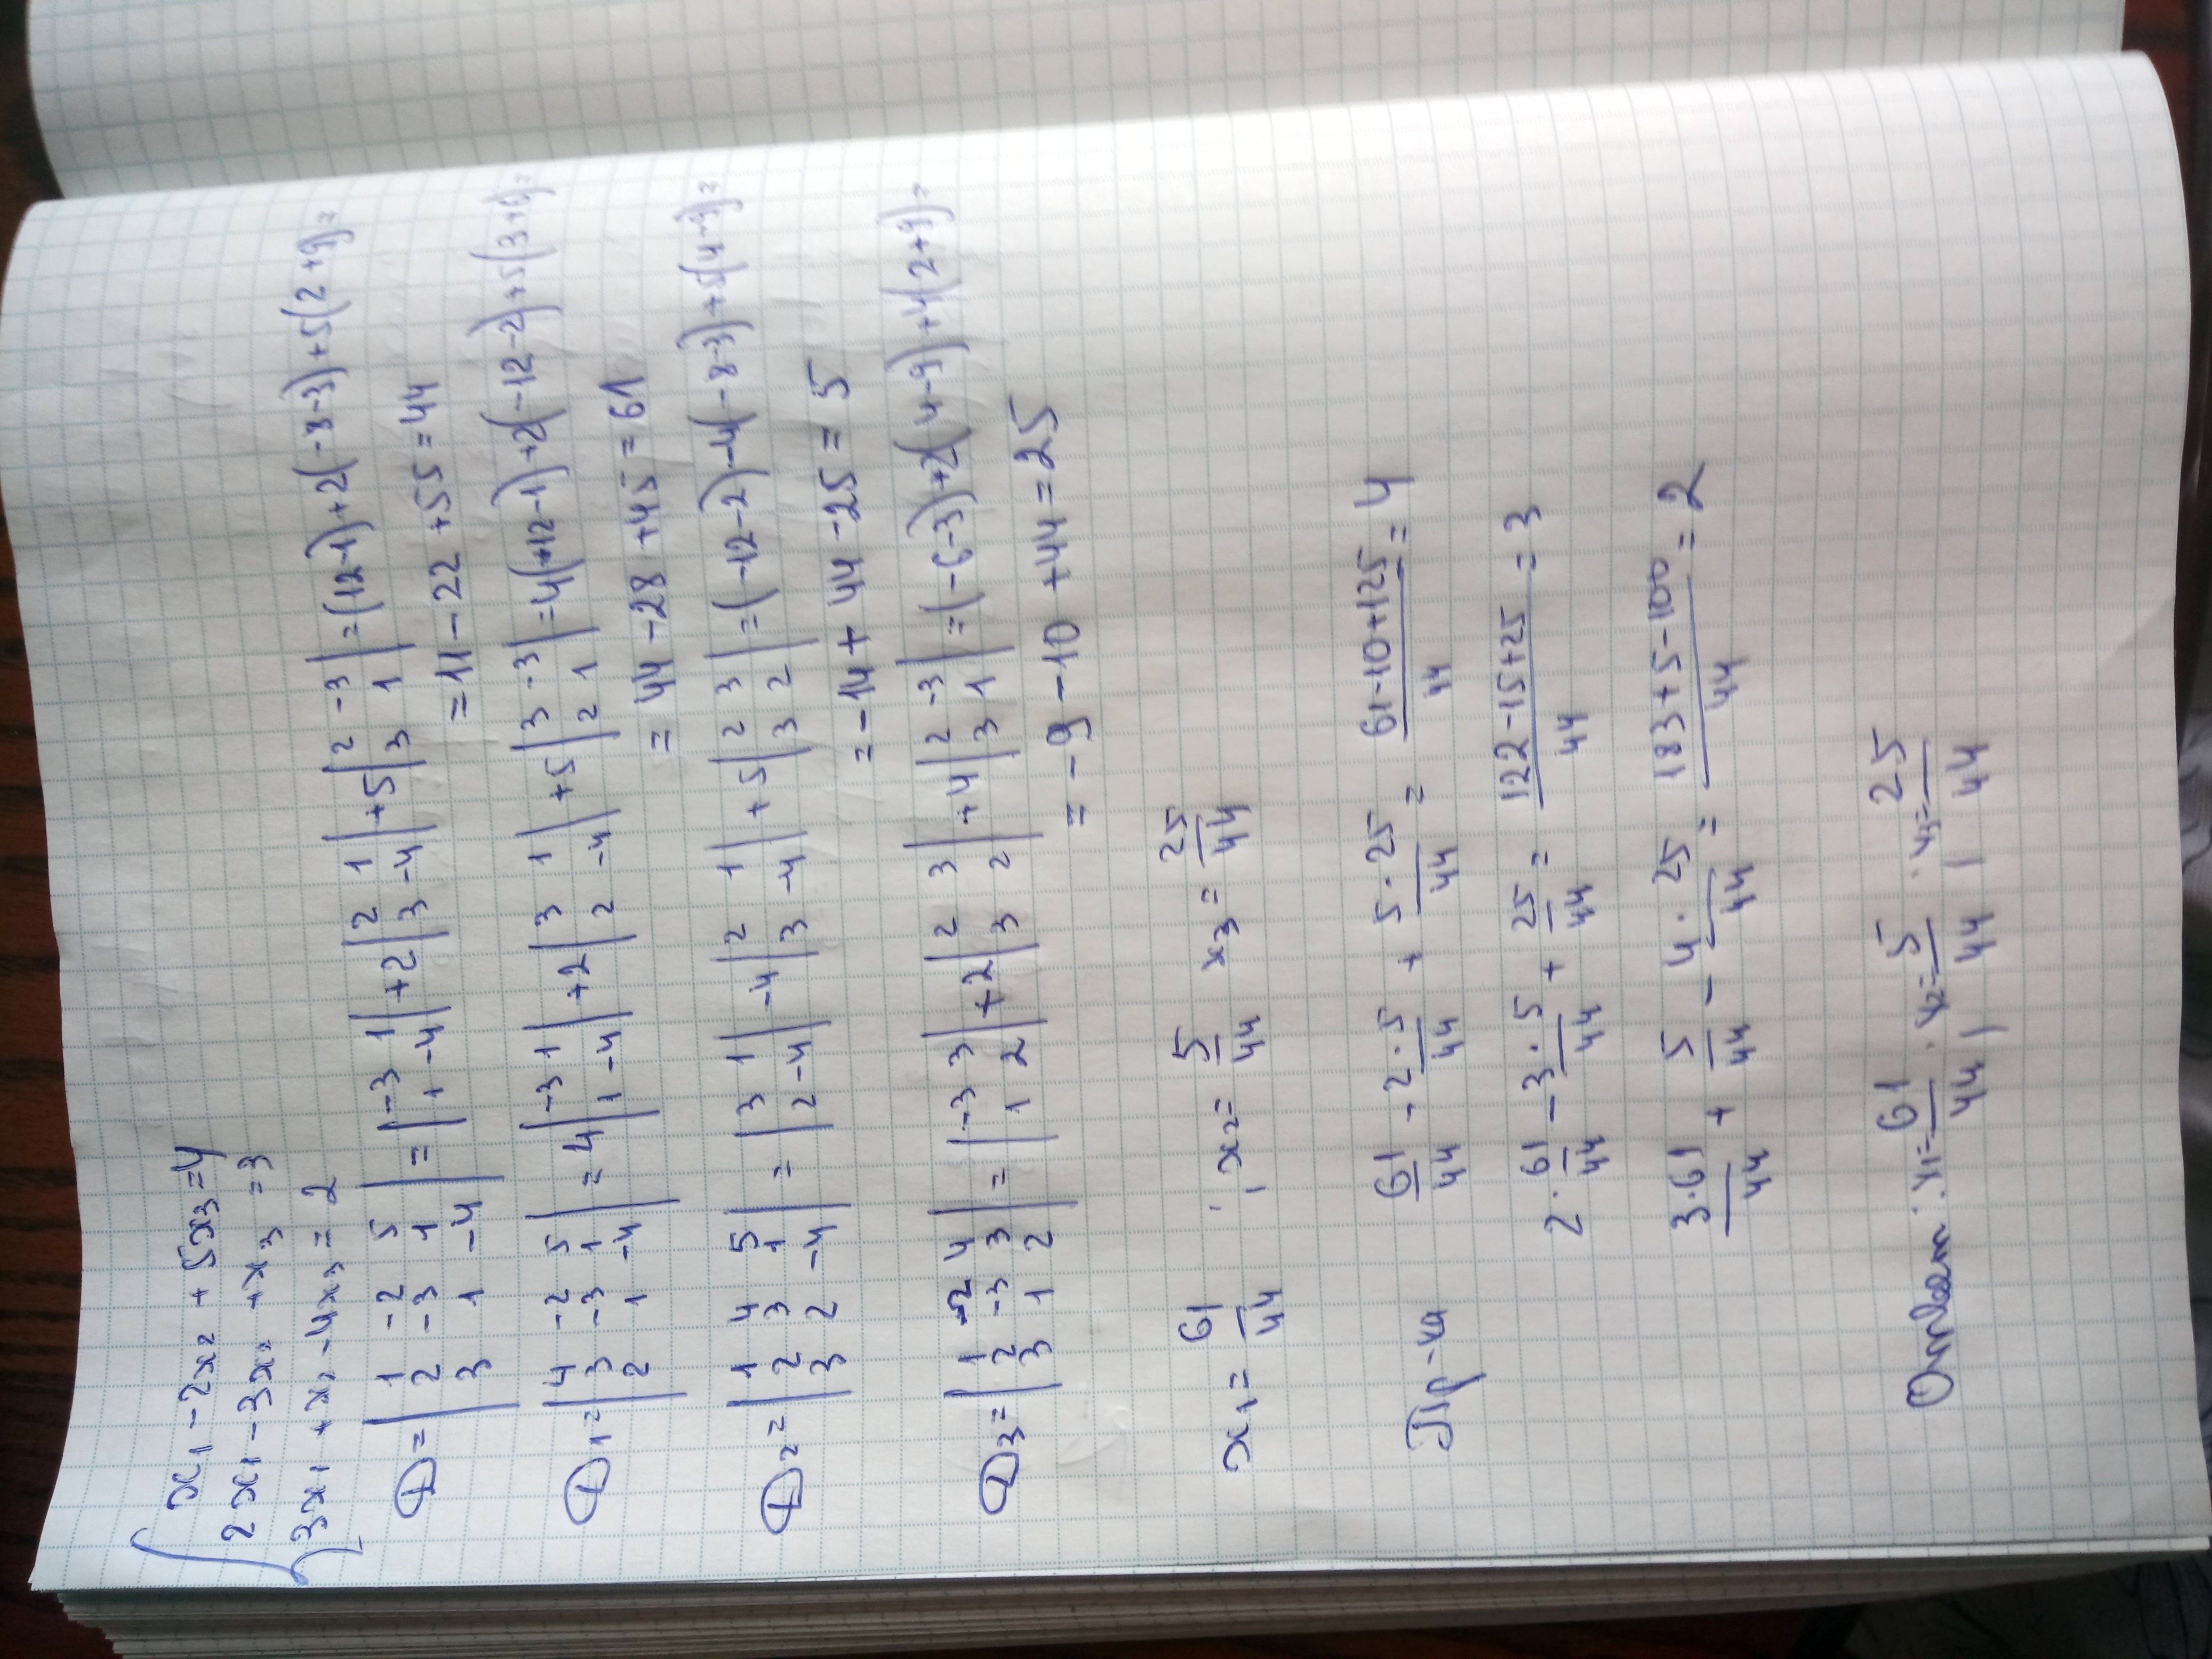 x₁ - 2x₂ + 5x₃ = 4
2x₁ - 3x₂ + x₃ = 3
3x₁ + x₂ - 4x₃ = 2
D = |1 -2 5; 2 -3 1; 3 1 -4| = |-3 1; 1 -4| + 2|2 1; 3 -4| + 5|2 -3; 3 1| = (12-1) + 2(-8-3) + 5(2+9) =
= 11 - 22 + 55 = 44
D₁ = |4 -2 5; 3 -3 1; 2 1 -4| = 4|-3 1; 1 -4| + 2|3 1; 2 -4| + 5|3 -3; 2 1| = 4(+12-1) + 2(-12-2) + 5(3+6) =
= 44 - 28 + 45 = 61
D₂ = |1 4 5; 2 3 1; 3 2 -4| = |3 1; 2 -4| - 4|2 1; 3 -4| + 5|2 3; 3 2| = (-12-2) - 4(-8-3) + 5(4-9) =
= -14 + 44 - 25 = 5
D₃ = |1 -2 4; 2 -3 3; 3 1 2| = |-3 3; 1 2| + 2|2 3; 3 2| + 4|2 -3; 3 1| = (-6-3) + 2(4-9) + 4(2+9) =
= -9 - 10 + 44 = 25
x₁ = 61/44 ; x₂ = 5/44 x₃ = 25/44
Пр-ка 61/44 - 2·5/44 + 5·25/44 = (61-10+125)/44 = 4
2·61/44 - 3·5/44 + 25/44 = (122-15+25)/44 = 3
3·61/44 + 5/44 - 4·25/44 = (183+5-100)/44 = 2
Ответ: x₁ = 61/44 ; x₂ = 5/44 ; x₃ = 25/44